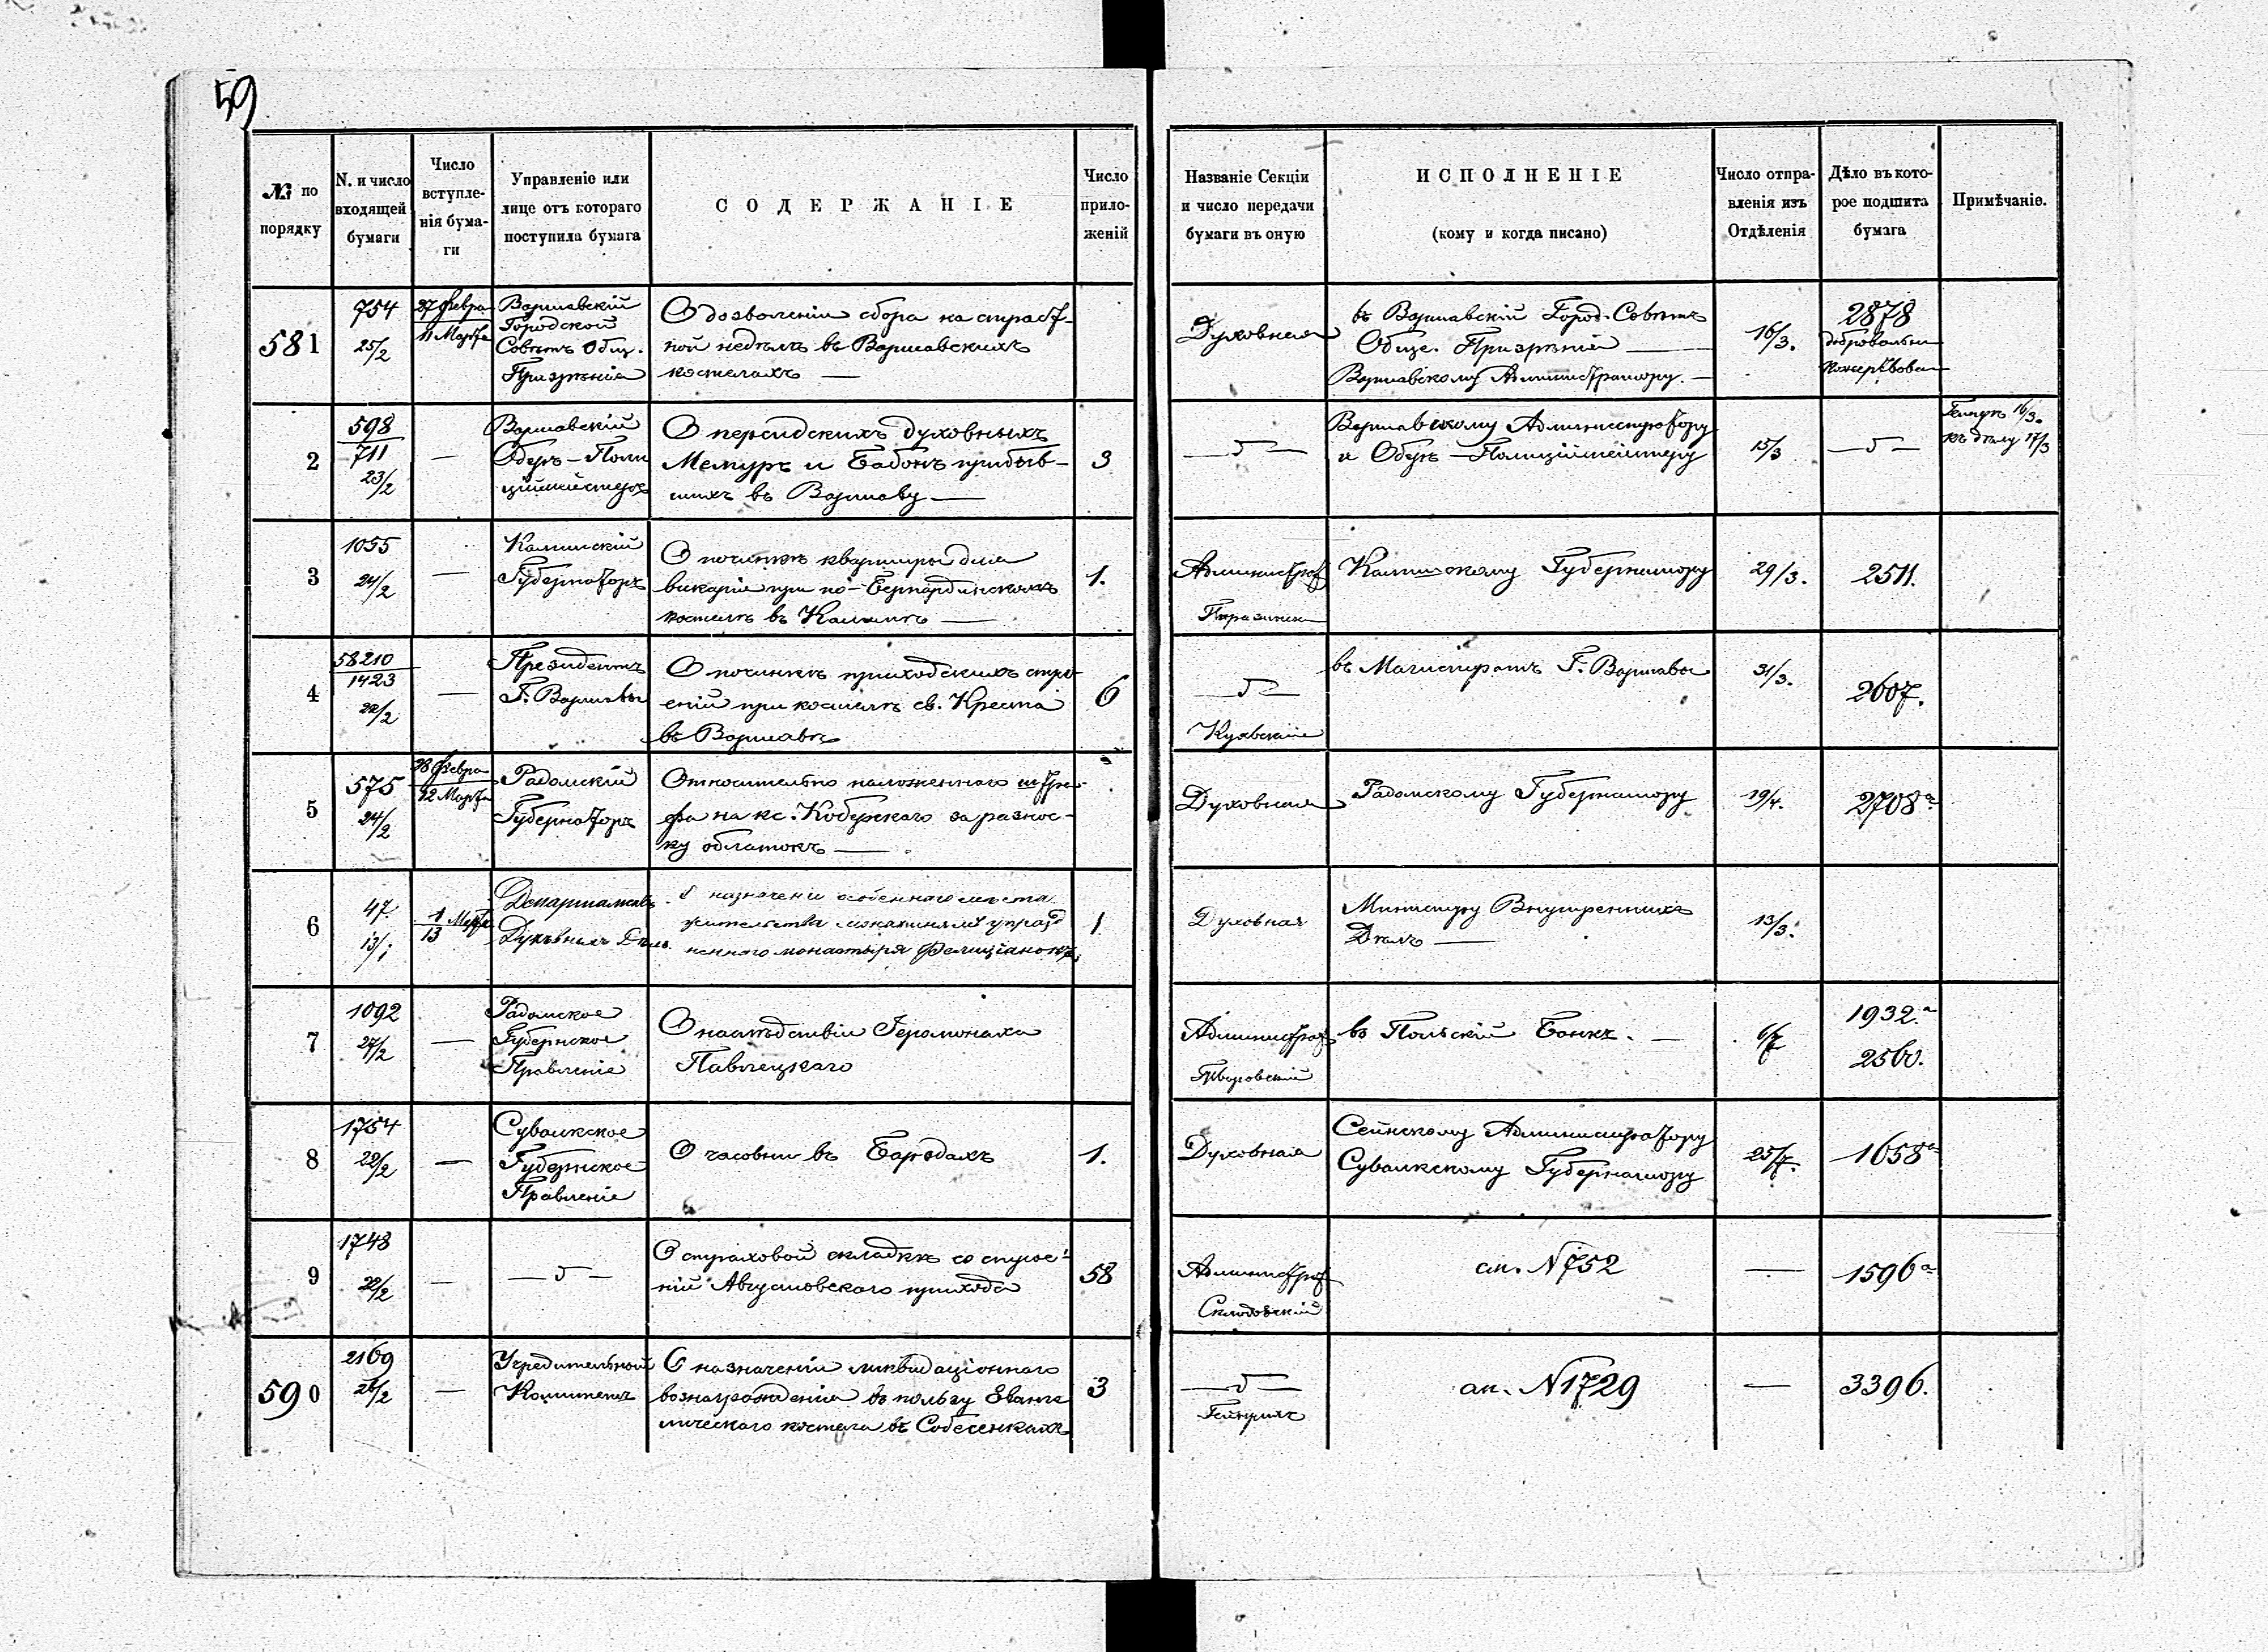 59
№ по порядку
N. и число входящей бумаги
Число вступле-нія бума-ги
Управленіе или лице отъ котораго поступила бумага
СОДЕРЖАНІЕ
Число прило-женій
Названіе Секціи и число передачи бумаги въ оную
ИСПОЛНЕНІЕ
(кому и когда писано)
Число отпра-вленія изъ Отдѣленія
Дѣло въ кото-рое подшита бумага
Примѣчаніе.
581
754
25/2
27 Февра
11 Марта
Варшавскій
Городской
Совѣтъ Общ.
Призрѣнія
О дозволеніи сбора на страст-
ной недѣлѣ въ Варшавскихъ
костелахъ —
Духовная
въ Варшавскій Город. Совѣтъ
Обще. Призрѣнія —
Варшавскому Администратору. —
16/3.
2878
2
598
711
23/2
—
Варшавскій
Оберъ-Поли
ціймейстеръ
О персидскихъ духовныхъ
Мемуръ и Бабонъ прибыв-
шихъ въ Варшаву —
3
Варшавскому Администратору
и Оберъ-Полиціймейстеру
15/3
16/3.
къ дѣлу 17/3
3
1055
24/2
—
Калишскій
Губернаторъ
О починкѣ квартиры для
викарія при по-Бернардинскомъ
костелѣ въ Калишѣ —
1.
Администр
Калишскому Губернатору
29/3.
2511.
4
58210
1423
22/2
—
Президентъ
Г. Варшавы
О починкѣ приходскихъ стро-
еній при костелѣ св. Креста
въ Варшавѣ
6
въ Магистратъ Г. Варшавы
31/3.
2607.
5
575
24/2
28 Февра
12 Марта
Радомскій
Губернаторъ
Относительно наложеннаго штра-
фа на кс. Кобержскаго за разнос-
ку облатокъ —
Духовная
Радомскому Губернатору
19/4.
2708а
6
47.
13/1
1/13 Марта
Департаментъ
Духовныхъ Дѣлъ
О назначеніи особеннаго мѣста
жительства монахинямъ упразд
неннаго монастыря Фелиціанокъ
1
Духовная
Министру Внутреннихъ
Дѣлъ —
13/3.
7
1092
27/2
—
Радомское
Губернское
Правленіе
О наслѣдствіи Іеромонаха
Администрат
въ Польскій Банкъ. —
6/7
1932.а
2560.
8
1754
22/2
—
Сувалкское
Губернское
Правленіе
О часовни въ Бардахъ
1.
Духовная
Сейнскому Администратору
Сувалкскому Губернатору
25/7.
1658а
9
1748
22/2
—
О страховой складкѣ со строе-
ній Августовскаго прихода
58
Администрат
Склодовскій
ап. N 752
—
1596а
590
2169
26/2
—
Учредительный
Комитетъ
О назначеніи ликвидаціоннаго
вознагражденія въ пользу Еванге
лическаго костела въ Собесенкахъ
3
Генрихъ
ап. N 1729
—
3396.